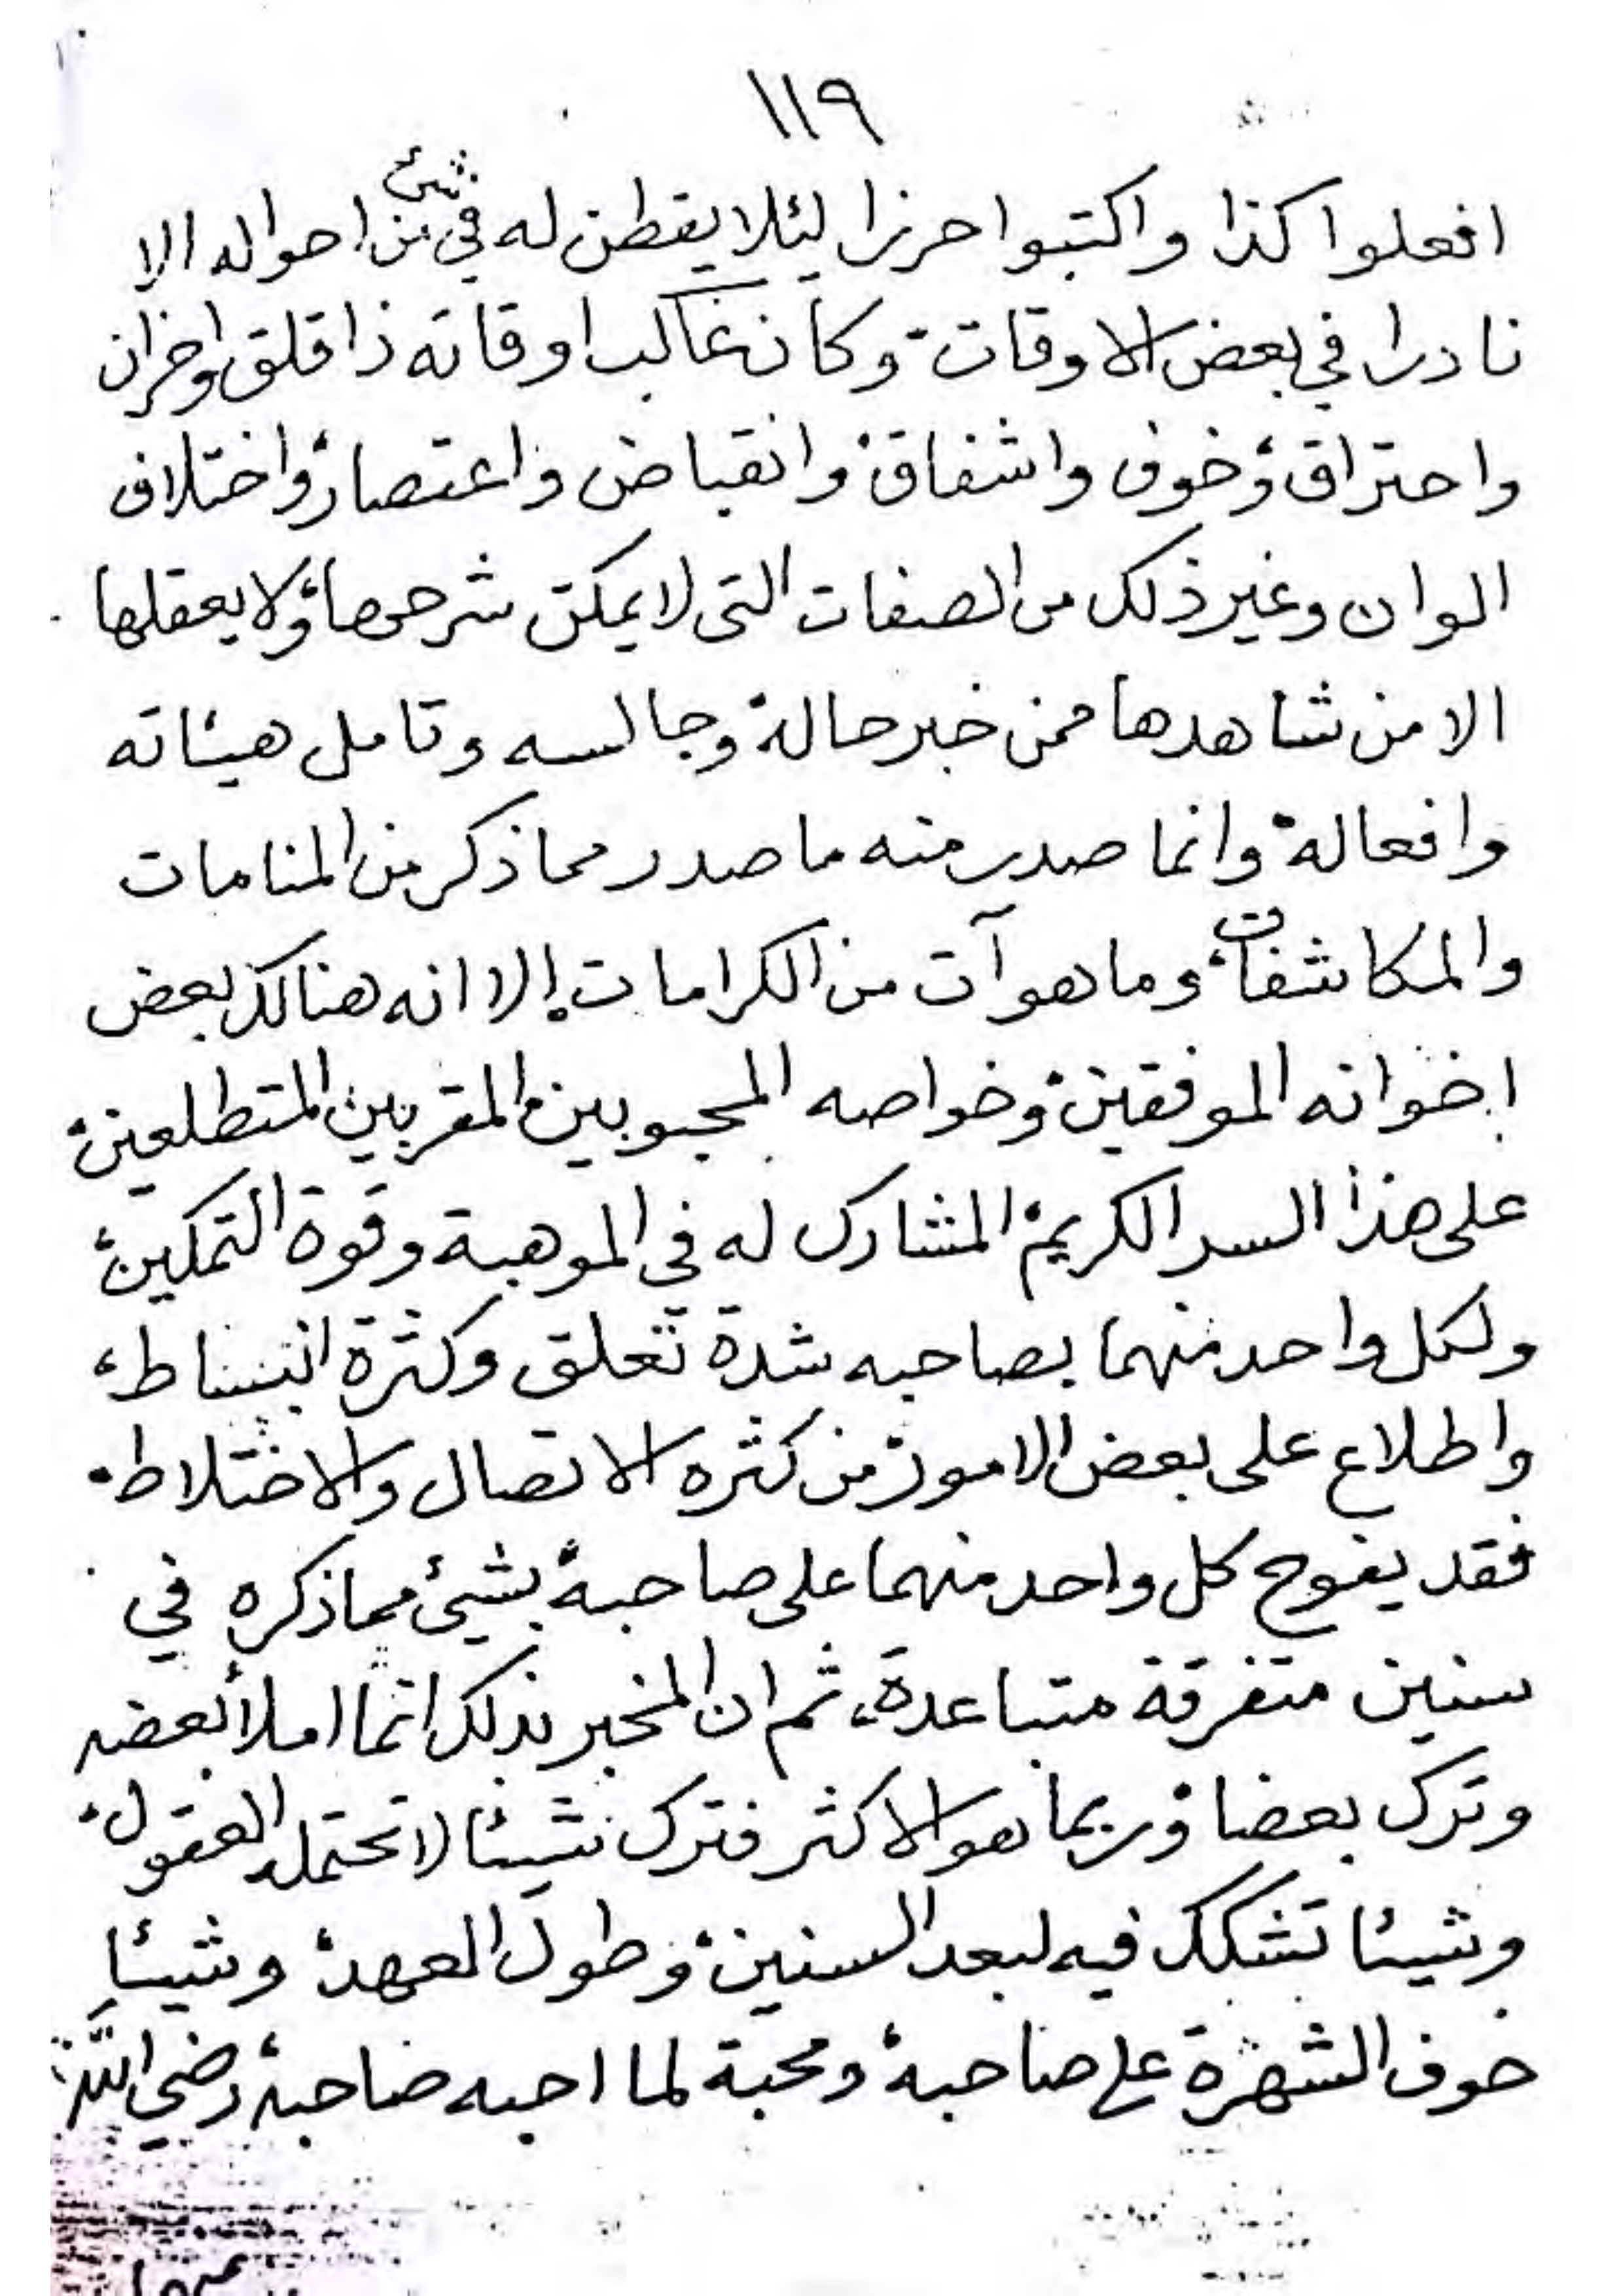 ١١٩
افعلوا كذا واكتبوا حرزا ليئلا يفطن له في شئ من احواله الا
نادرا في بعض الاوقات، وكان غالب اوقاته ذا قلق واحزان
واحتراق، وخوف واشفاق، وانقباض واعتصار، واختلاف
الوان وغير ذلك من الصفات التى لا يمكن شرحها، ولا يعقلها
الا من شاهدها ممن خبر حاله، وجالسه وتامل هيئاته
وافعاله، وانما صدر منه ما صدر مما ذكر من المنامات
والمكاشفات، وما هو آت من الكرامات، إلا انه هنالك بعض
إخوانه الموفقين، وخواصه المحبوبين، المقربين المتطلعين،
على هذا السر الكريم، المشارك له فى الموهبة وقوة التمكين،
ولكل واحد منهما بصاحبه شدة تعلق وكثرة انبساط،
واطلاع على بعض الامور، من كثره الاتصال والاختلاط،
فقد يفوح كل واحد منهما على صاحبه، بشيئ مما ذكره في
سنين متفرقة متباعدة، ثم ان المخبر بذلك انما املأ بعضه
وترك بعضا، وربما هو الاكثر فترك شيئا لا تحتمله العقول،
وشيئا تشكك فيه لبعد السنين، وطول العهد، وشيئا
خوف الشهرة على صاحبه، ومحبة لما احبه صاحبه، رضي الله